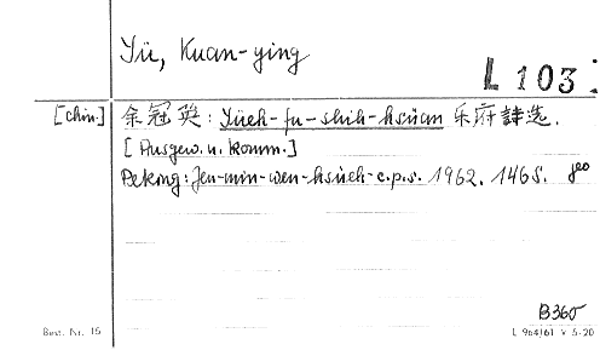 Yü, Kuan-ying
L 103
[chin.] 余冠英: Yüeh-fu-shih-hsüan 乐府詩选.
[Ausgew. u. komm.]
Peking: Jen-min-wen-hsüeh-c.p.s. 1962. 146 S. 8°
B 360
Best. Nr. 15
L 964/61 V 5-20